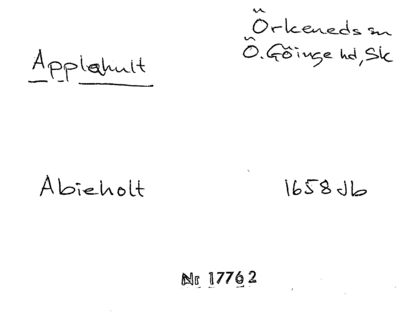 Örkeneds sn
Applahult
Ö. Göinge hd, Sk
Abieholt
1658 Jb
Nr 17762